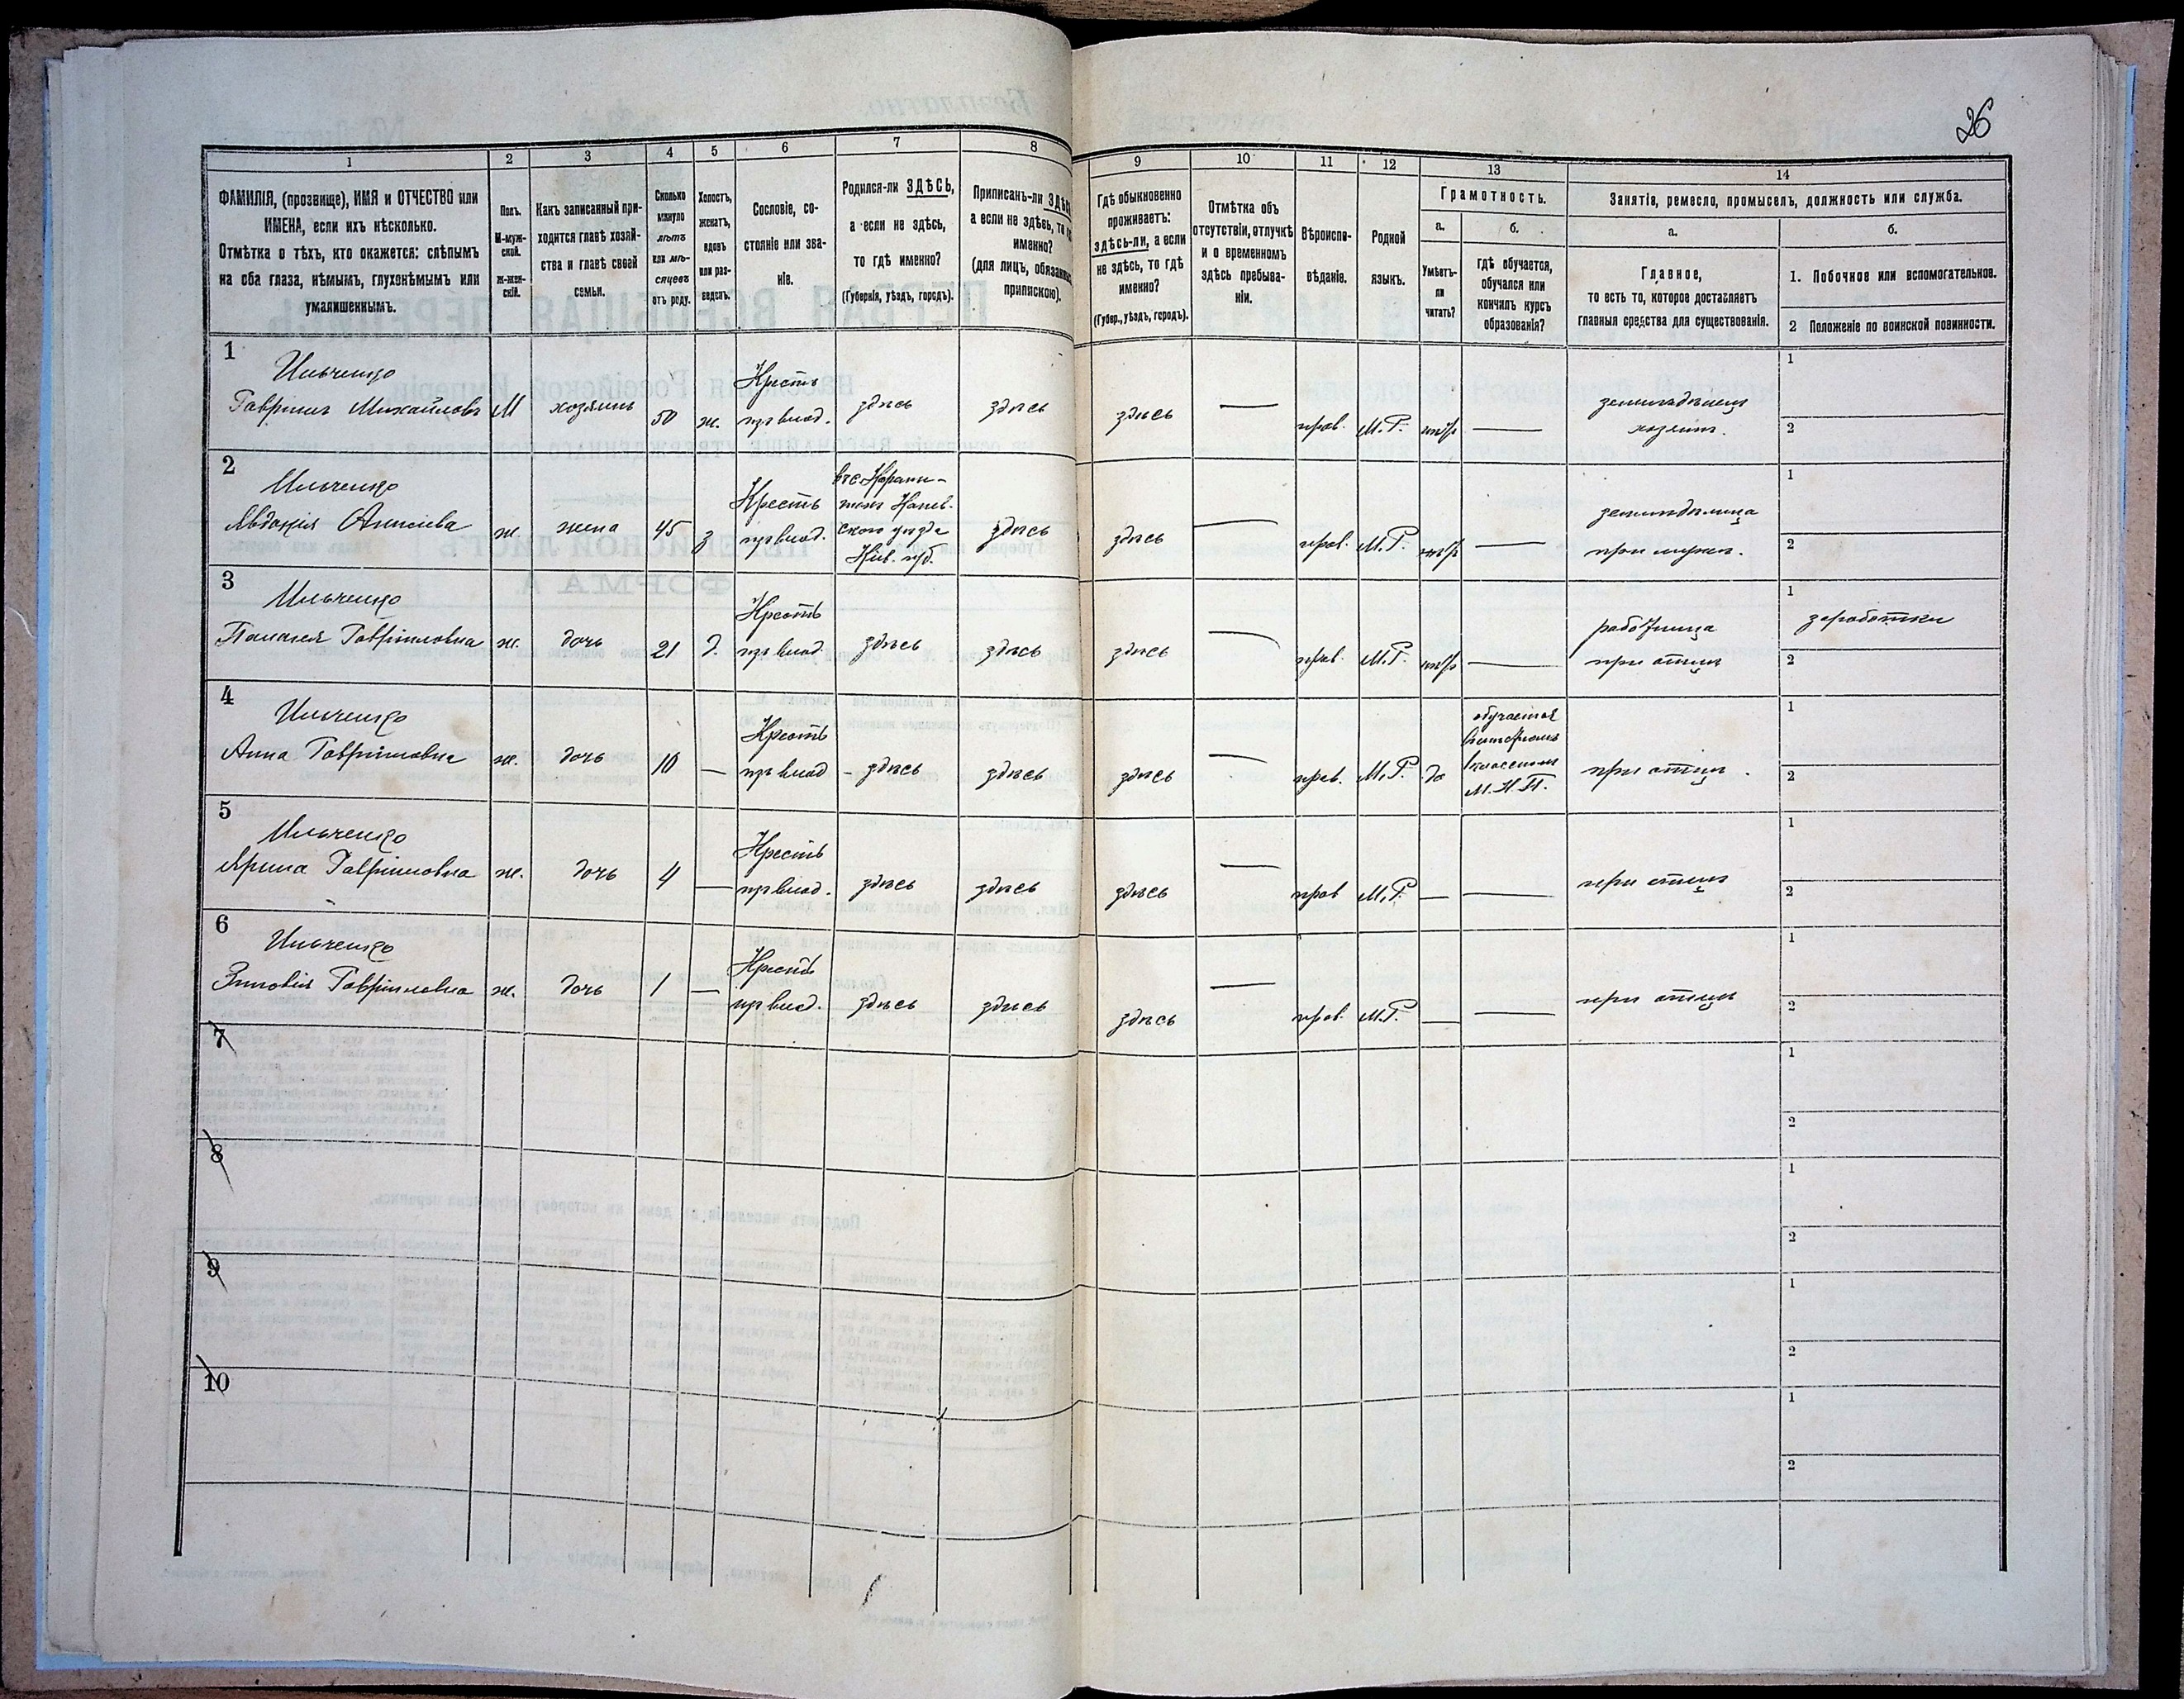 26
1
2
3
4
5
6
7
8
9
10
11
12
13
14
ФАМИЛІЯ, (прозвище), ИМЯ и ОТЧЕСТВО или
ИМЕНА, если ихъ нѣсколько.
Отмѣтка о тѣхъ, кто окажется: слѣпымъ
на оба глаза, нѣмымъ, глухонѣмымъ или
умалишеннымъ.
Полъ.
М-муж-
ской.
ж-жен-
скій.
Какъ записанный при-
ходится главѣ хозяй-
ства и главѣ своей
семьи.
Сколько
минуло
лѣтъ
или мѣ-
сяцевъ
отъ роду.
Холостъ,
женатъ,
вдовъ
или раз-
веденъ.
Сословіе, со-
стояніе или зва-
ніе.
Родился-ли ЗДѢСЬ,
а если не здѣсь,
то гдѣ именно?
(Губернія, уѣздъ, городъ).
Приписанъ-ли
а если не здѣсь,
именно?
(для лицъ,
припискою).
Гдѣ обыкновенно
проживаетъ:
здѣсь-ли, а если
не здѣсь, то гдѣ
именно?
(Губер., уѣздъ, городъ).
Отмѣтка объ
отсутствіи, отлучкѣ
и о временномъ
здѣсь пребыва-
ніи.
Вѣроиспо-
вѣданіе.
Родной
языкъ.
Грамотность.
а.
Умѣетъ-
ли
читать?
б.
гдѣ обучается,
обучался или
кончилъ курсъ
образованія?
Занятія, ремесло, промыселъ, должность или служба.
а.
Главное,
то есть то, которое доставляетъ
главныя средства для существованія.
б.
1. Побочное или вспомогательное.
2 Положеніе по воинской повинности.
1
Ильченко
Гавріилъ Михайловъ
М
хозяинъ
50
ж.
Крестъ
изъ влад.
здѣсь
здѣсь
здѣсь
—
прав.
М.Р.
нѣтъ
—
земледѣлецъ
хозяинъ.
1
2
2
Ильченко
Явдокія
ж.
жена
45
з
Крестъ
изъ влад.
Канев-
скаго уѣзда
Кіев. губ.
здѣсь
здѣсь
—
прав.
М.Р.
нѣтъ
—
при мужѣ.
1
2
3
Ильченко
Палагея Гавріиловна
ж.
дочь
21
д.
Крестъ
изъ влад.
здѣсь
здѣсь
здѣсь
—
прав.
М.Р.
нѣтъ
—
работница
при отцѣ
1
заработки
2
4
Ильченко
Анна Гавріиловна
ж.
дочь
10
—
Крестъ
изъ влад
здѣсь
здѣсь
здѣсь
—
прав.
М.Р.
да
обучается
М.Н.П.
при отцѣ.
1
2
5
Ильченко
Ярина Гавріиловна
ж.
дочь
4
—
Крестъ
изъ влад.
здѣсь
здѣсь
здѣсь
—
прав
М.Р.
—
—
при отцѣ
1
2
6
Ильченко
Зиновія Гавріиловна
ж.
дочь
1
—
Крестъ
изъ влад.
здѣсь
здѣсь
здѣсь
—
прав.
М.Р.
—
—
при отцѣ
1
2
7
1
2
8
1
2
9
1
2
10
1
2